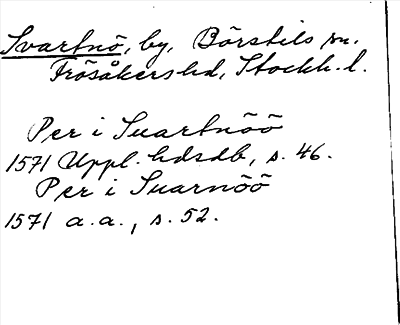 Svartnö, by, Börstils sn.
Frösåkers hd, Stockh. l.
Per i Suartnöö
1571 Uppl. hdsdb, s. 46.
Per i Suarnöö
1571 a.a., s. 52.